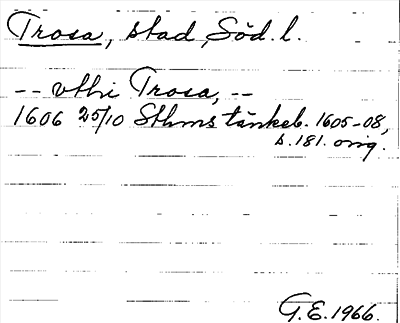 Trosa, stad, Söd. l.
-- vthi Trosa, --
1606 25/10 Sthms tänkeb. 1605-08,
s. 181. orig.
G.E. 1966.